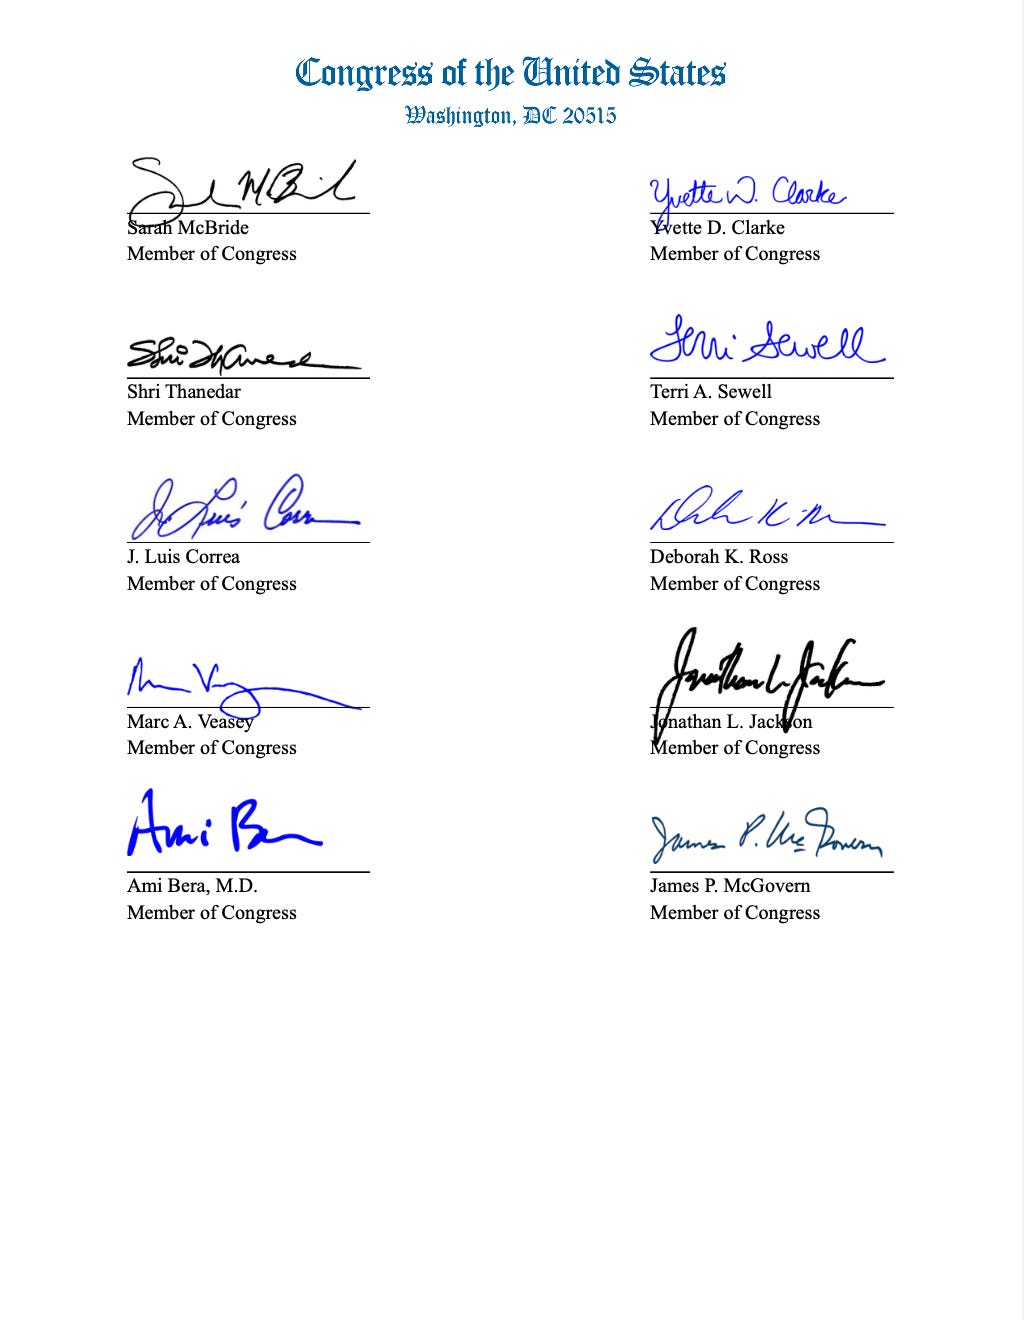 Congress of the United States
Washington, DC 20515
Sarah McBride
Sarah McBride
Member of Congress
Yvette D. Clarke
Yvette D. Clarke
Member of Congress
Shri Thanedar
Shri Thanedar
Member of Congress
Terri Sewell
Terri A. Sewell
Member of Congress
J. Luis Correa
J. Luis Correa
Member of Congress
Deborah K. Ross
Member of Congress
Marc A. Veasey
Member of Congress
Jonathan L. Jackson
Jonathan L. Jackson
Member of Congress
Ami Bera
Ami Bera, M.D.
Member of Congress
James P. McGovern
James P. McGovern
Member of Congress